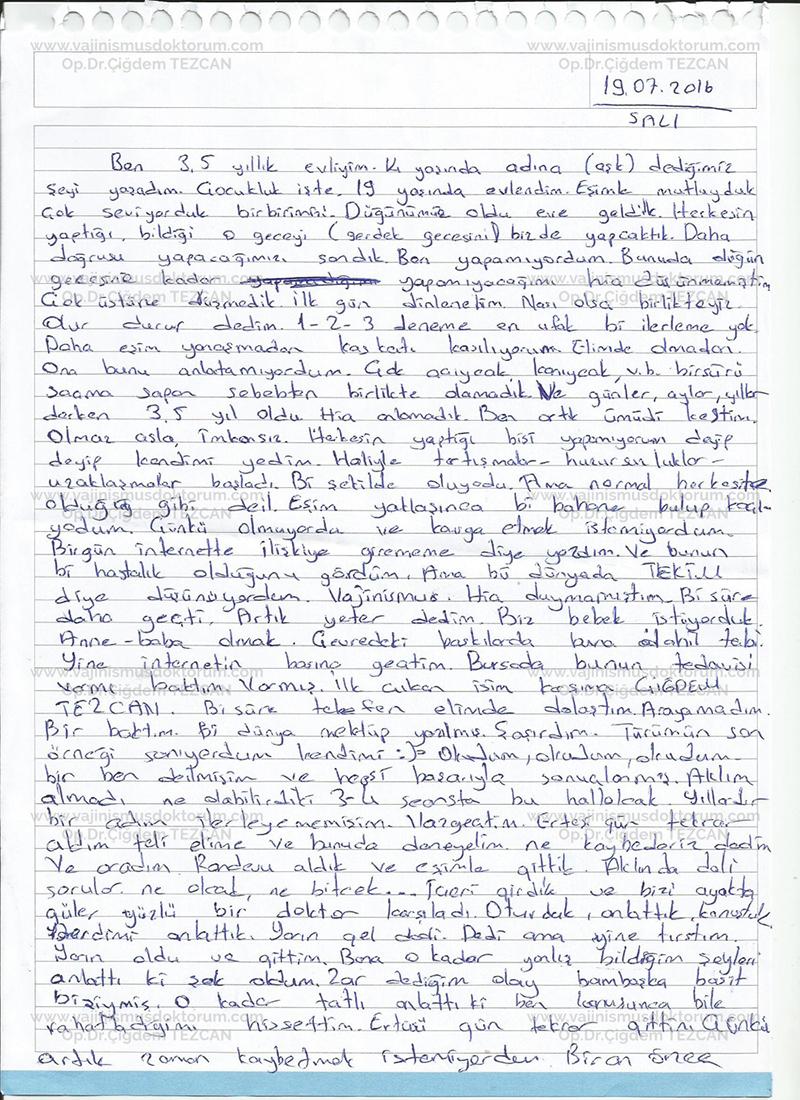 www.vajinismusdoktorum.com www.vajinismusdoktorum.com
Op.Dr.Çiğdem TEZCAN Op.Dr.Çiğdem TEZCAN
19.07.2016
SALI
Ben 3,5 yıllık evliyim. Kı yaşında adına (aşk) dediğimiz
şeyi yaşadım. Çocukluk işte. 19 yaşında evlendim. Eşimle mutluyduk
Çok seviyorduk birbirimizi. Düğünümüz oldu eve geldik. Herkesin
yaptığı, bildiği o geceyi (gerdek gecesini) bizde yapcaktık. Daha
doğrusu yapacağımızı sandık. Ben yapamıyordum. Bunuda düğün
gecesine kadar yapamıyacağımı hiç düşünmemiştim
Çok üstüne düşmedik. İlk gün dinlenelim. Nasıl olsa birlikteyiz
Olur durur dedim. 1-2-3 deneme en ufak bi ilerleme yok.
Daha eşim yanaşmadan kaskatı kasılıyorum. Elimde olmadan.
Ona bunu anlatamıyordum. Çok acıycak, kanıycak, v.b. birsürü
saçma sapan sebebten birlikte olamadık. Ve günler, aylar, yıllar
derken 3,5 yıl oldu. Hiç anlamadık. Ben artk ümüdi kestim.
Olmaz asla, imkansız. Herkesin yaptığı bişi yapamıyorum deyip
deyip kendimi yedim. Haliyle tartışmalar- huzursuzluklar-
uzaklaşmalar başladı. Bi şekilde oluyodu. Ama normal herkeste
olduğu gibi deil. Eşim yatlaşınca bi bahane bulup kaçı-
yodum. Çünkü olmuyordu ve kavga etmek istemiyordum.
Birgün internette ilişkiye girememe diye yazdım. Ve bunun
bi hastalık olduğunu gördüm. Ama bu dünyada TEKİM
diye düşünüyordum. Vajinismus. Hiç duymamıştım. Bi süre
daha geçti. Artık yeter dedim. Biz bebek istiyorduk.
Anne-baba olmak. Çevredeki baskılarda buna dahil tabi.
Yine internetin başına geçtim. Bursada bunun tedavisi
varmı baktım. Varmış. İlk çıkan isim karşıma ÇİĞDEM
TEZCAN. Bi süre telefon elimde dolaştım. Arayamadım.
Bir baktım. Bi dünya mektüp yazılmış. Şaşırdım. Türümün son
örneği sanıyordum kendimi :) Okudum, okudum, okudum.
bir ben deilmişim ve hepsi başarıyla sonuçlanmış. Aklım
almadı ne olabilirdiki 3-4 seansta bu hallolcak. Yıllardır
bir adım ilerleyememişim. Vazgeçtim. Ertesi gün tekrar
aldım teli elime ve bunuda deneyelim. ne kaybederiz dedim
Ve aradım. Randevu aldık ve eşimle gittik. Aklımda deli
sorular. ne olcak, ne bitcek... İçeri girdik ve bizi ayakta
güler yüzlü bir doktor karşıladı. Oturduk, anlattık, konuştuk
derdimi anlattık. Yarın gel dedi. Dedi ama yine tırstım.
Yarın oldu ve gittim. Bana o kadar yanlış bildiğim şeyleri
anlattı ki şok oldum. Zar dediğim olay bambaşka basit
bişiymiş. O kadar tatlı anlattı ki ben konuşunca bile
rahatladığımı hissettim. Ertüsü gün tekrar gittim. Çünkü
artık zaman kaybetmek istemiyordum. Biran önce
www.vajinismusdoktorum.com www.vajinismusdoktorum.com
Op.Dr.Çiğdem TEZCAN Op.Dr.Çiğdem TEZCAN